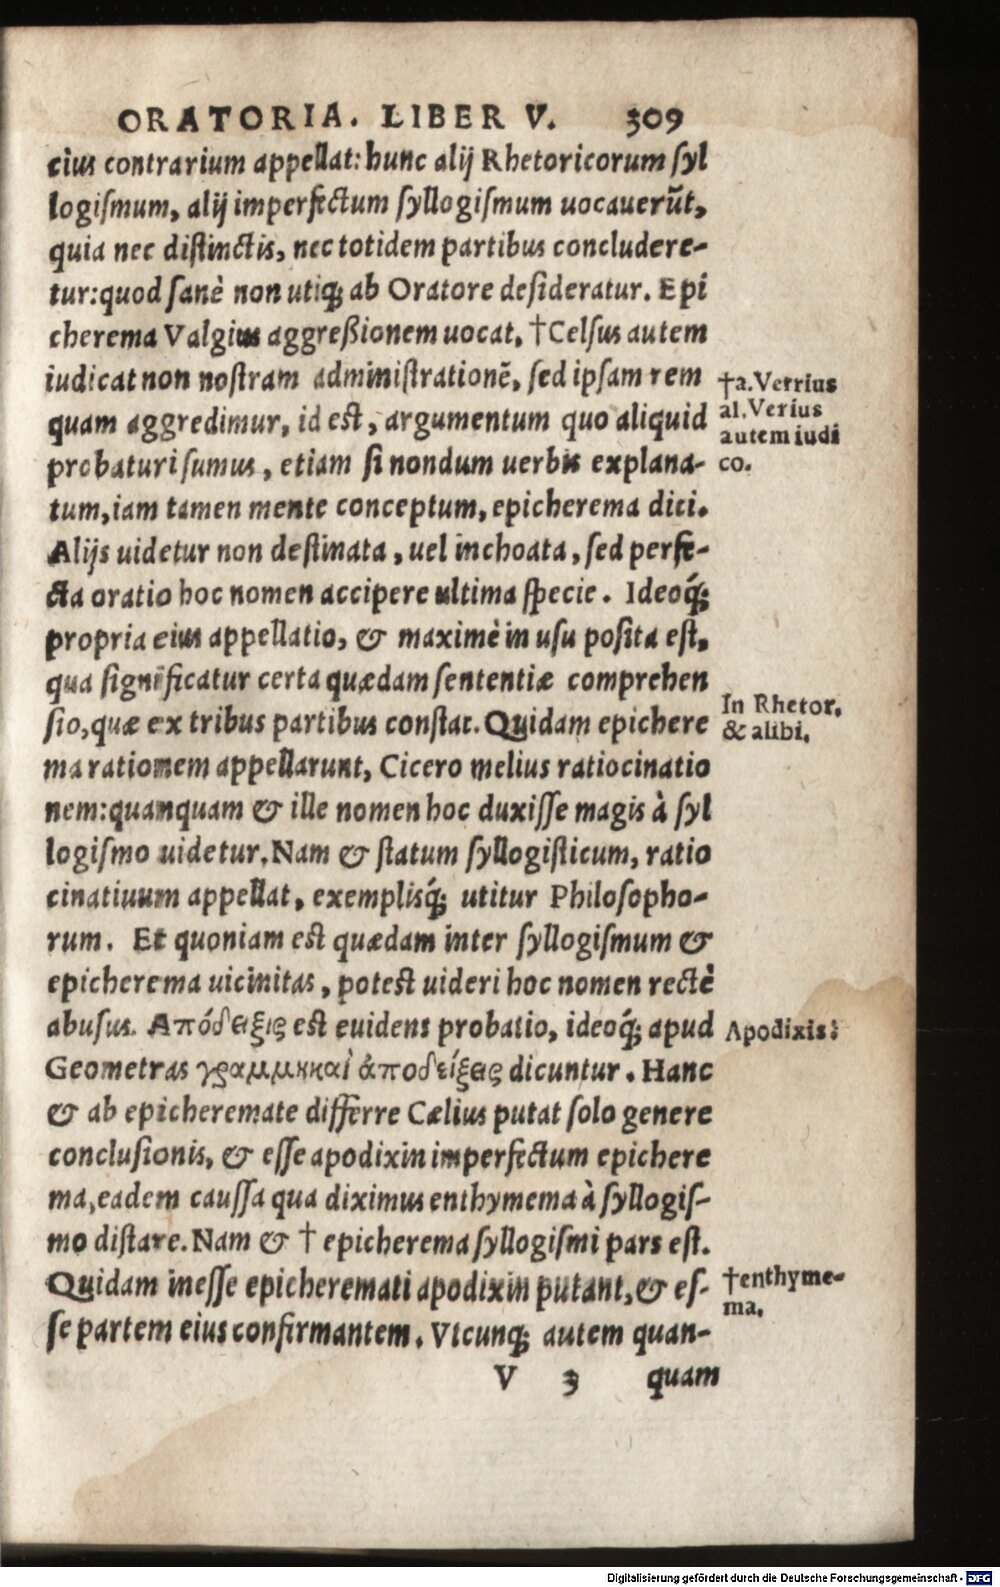 ORATORIA. LIBER V. 309
cius contrarium appellat: hunc alij Rhetoricorum syl
logismum, alij imperfectum syllogismum uocauerūt,
quia nec distinctis, nec totidem partibus concludere-
tur: quod sanè non utiq; ab Oratore desideratur. Epi
cherema Valgius aggreßionem uocat. †Celsus autem
iudicat non nostram administrationē, sed ipsam rem
†a. Verrius
quam aggredimur, id est, argumentum quo aliquid
al. Verius
autem iudi
probaturi sumus, etiam si nondum uerbis explana-
co.
tum, iam tamen mente conceptum, epicherema dici.
Alijs uidetur non destinata, uel inchoata, sed perfe-
cta oratio hoc nomen accipere ultima specie. Ideoq́;
propria eius appellatio, & maximè in usu posita est,
qua significatur certa quædam sententiæ comprehen
In Rhetor.
sio, quæ ex tribus partibus constat. Quidam epichere
& alibi.
ma rationem appellarunt, Cicero melius ratiocinatio
nem: quanquam & ille nomen hoc duxisse magis à syl
logismo uidetur. Nam & statum syllogisticum, ratio
cinatiuum appellat, exemplisq́; utitur Philosopho-
rum. Et quoniam est quædam inter syllogismum &
epicherema uicinitas, potest uideri hoc nomen rectè
abusus. Απόδειξις est euidens probatio, ideoq́; apud
Apodixis:
Geometras γραμμικαὶ ἀποδείξεις dicuntur. Hanc
& ab epicheremate differre Cælius putat solo genere
conclusionis, & esse apodixin imperfectum epichere
ma, eadem caussa qua diximus enthymema à syllogis-
mo distare. Nam & † epicherema syllogismi pars est.
Quidam inesse epicheremati apodixin putant, & es-
†enthyme-
ma.
se partem eius confirmantem. Vtcunq; autem quan-
V 3 quam
Digitalisierung gefördert durch die Deutsche Forschungsgemeinschaft - DFG